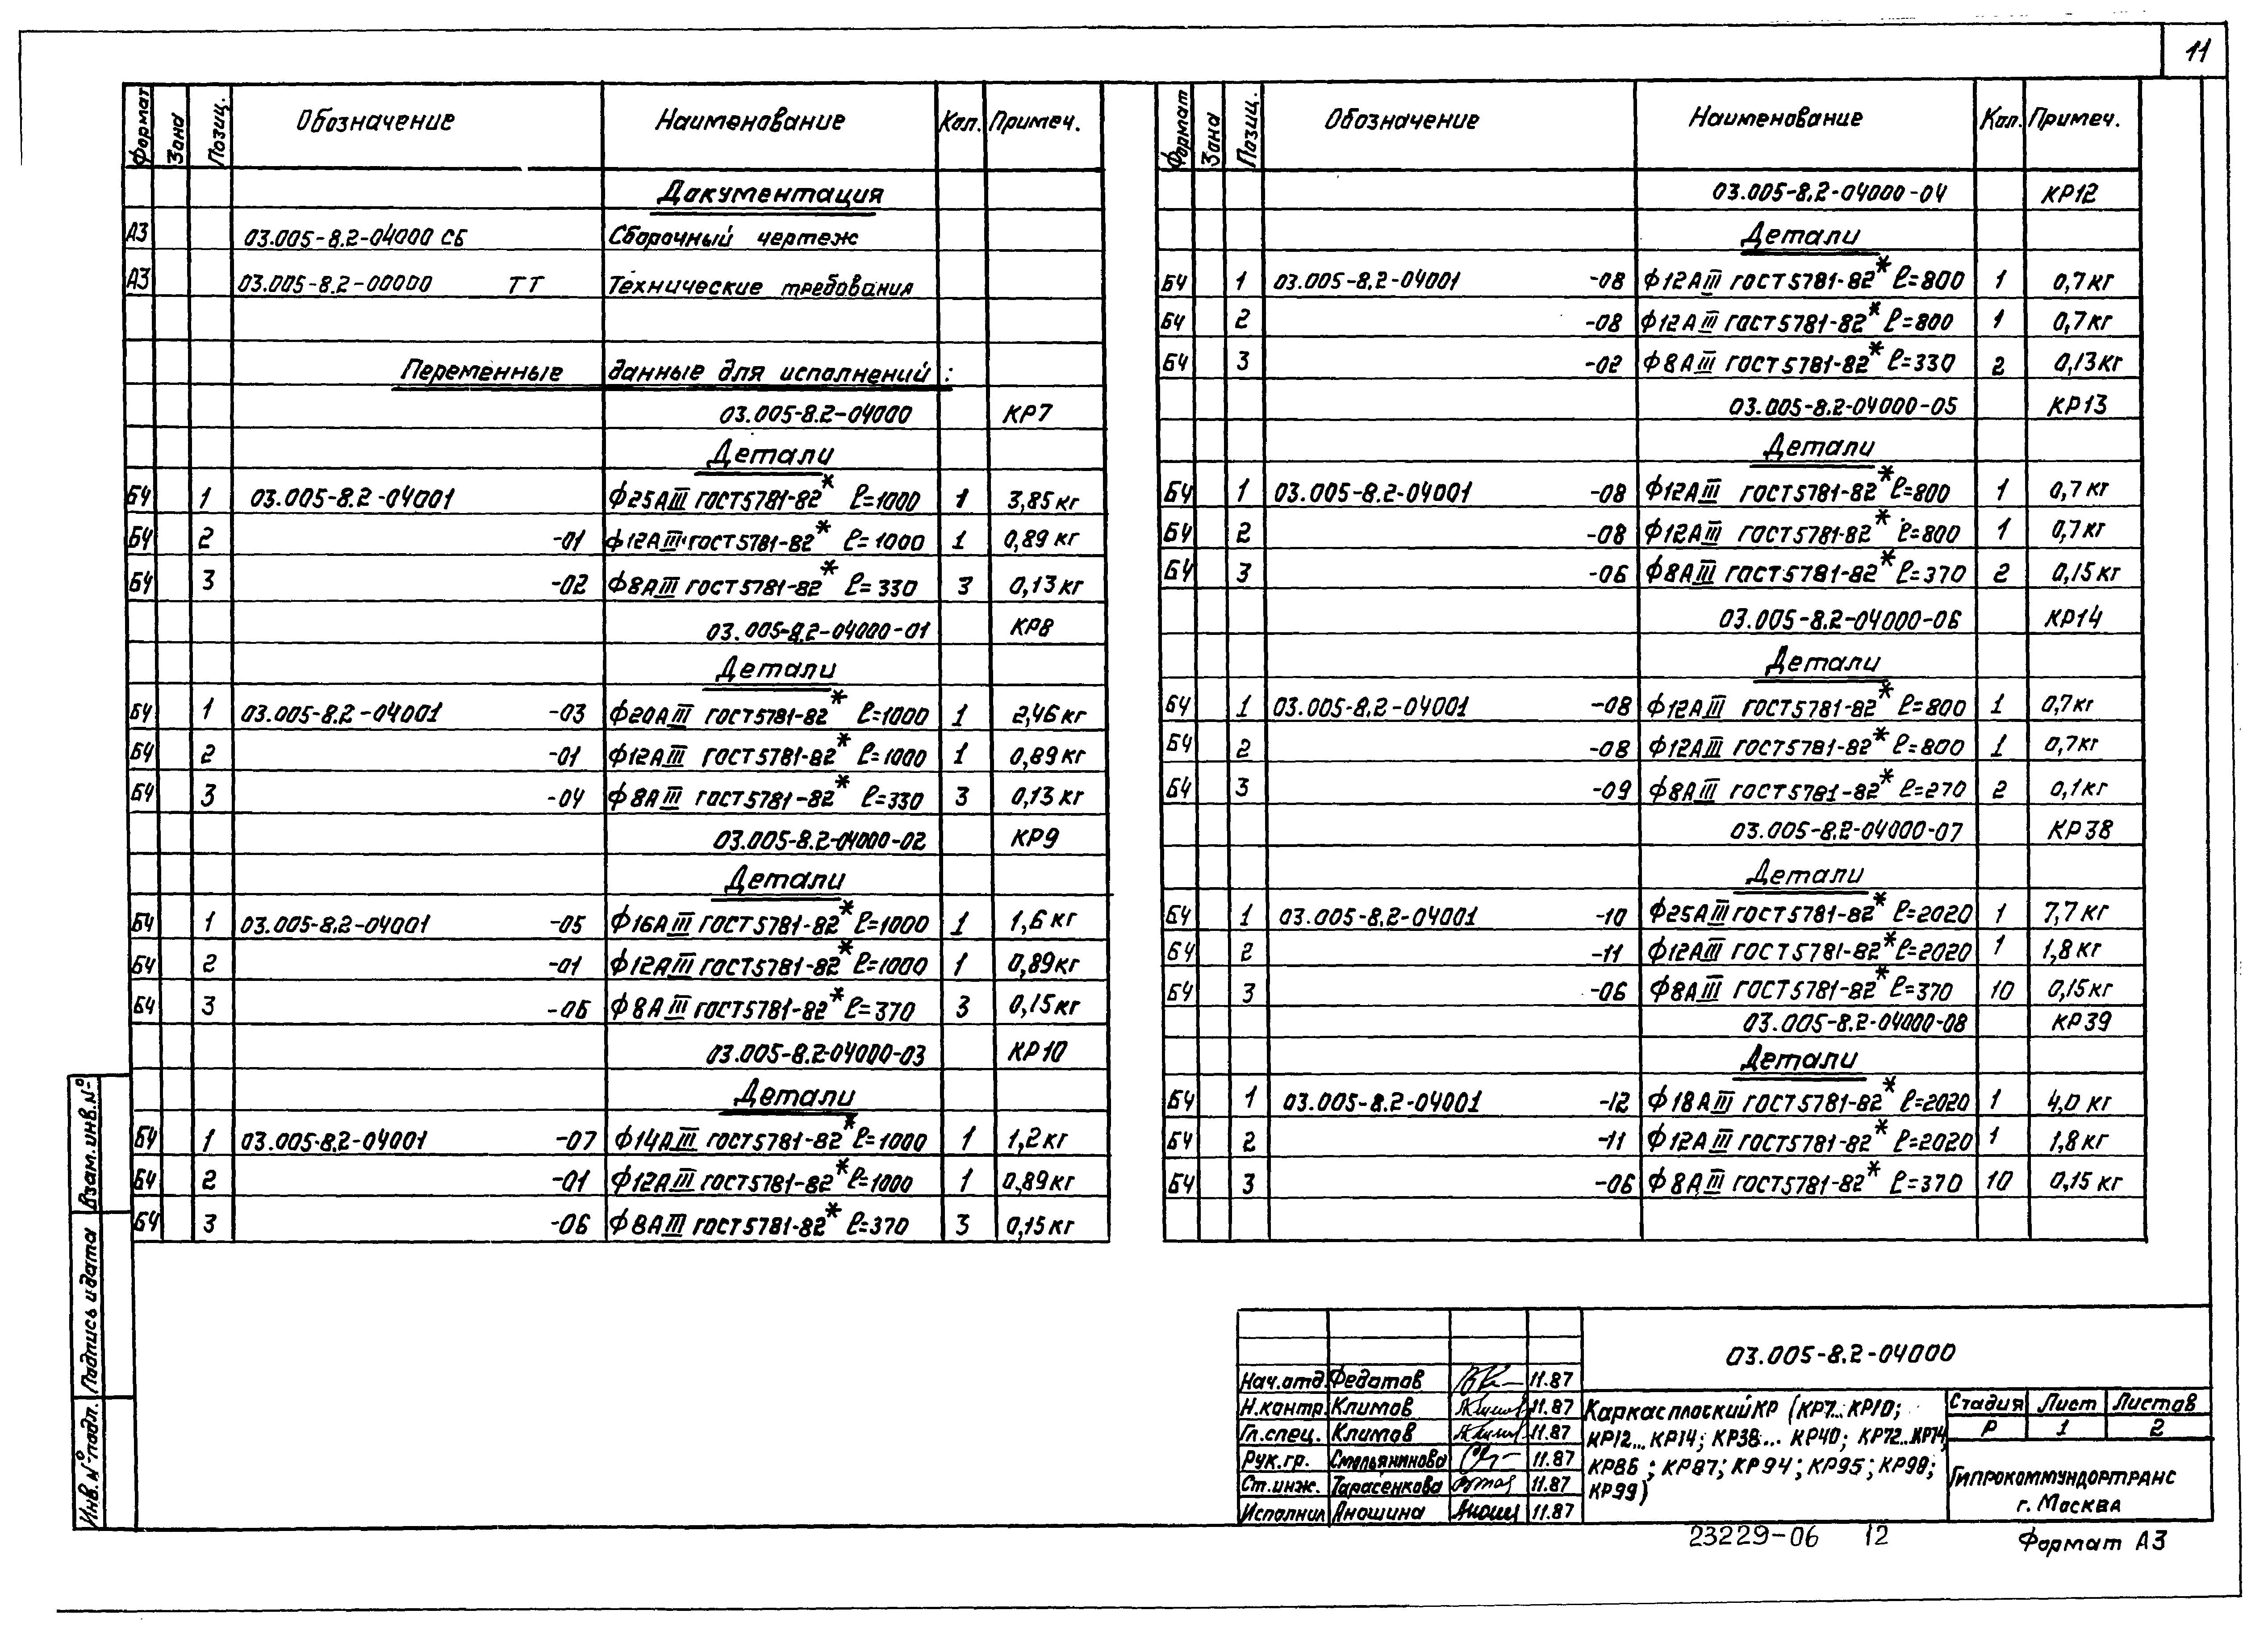 11
Формат Зона Позиц. Обозначение Наименование Кол. Примеч.
Документация
А3 03.005-8.2-04000 СБ Сборочный чертеж
А3 03.005-8.2-00000 ТТ Технические требования
Переменные данные для исполнений:
03.005-8.2-04000 КР7
Детали
БЧ 1 03.005-8.2-04001 Ф25АIII ГОСТ5781-82* ℓ=1000 1 3,85кг
БЧ 2 -01 Ф12АIII ГОСТ5781-82* ℓ=1000 1 0,89 кг
БЧ 3 -02 Ф8АIII ГОСТ5781-82* ℓ=330 3 0,13кг
03.005-8.2-04000-01 КР8
Детали
БЧ 1 03.005-8.2-04001 -03 Ф20АIII ГОСТ5781-82* ℓ=1000 1 2,46кг
БЧ 2 -01 Ф12АIII ГОСТ5781-82* ℓ=1000 1 0,89кг
БЧ 3 -04 Ф8АIII ГОСТ5781-82* ℓ=330 3 0,13 кг
03.005-8.2-04000-02 КР9
Детали
БЧ 1 03.005-8.2-04001 -05 Ф16АIII ГОСТ5781-82* ℓ=1000 1 1,6кг
БЧ 2 -01 Ф12АIII ГОСТ5781-82* ℓ=1000 1 0,89кг
БЧ 3 -06 Ф8АIII ГОСТ5781-82* ℓ=370 3 0,15кг
03.005-8.2-04000-03 КР10
Детали
БЧ 1 03.005-8.2-04001 -07 Ф14АIII ГОСТ5781-82* ℓ=1000 1 1,2кг
БЧ 2 -01 Ф12АIII ГОСТ5781-82* ℓ=1000 1 0,89кг
БЧ 3 -06 Ф8АIII ГОСТ5781-82* ℓ=370 3 0,15кг
Формат Зона Позиц. Обозначение Наименование Кол. Примеч.
03.005-8.2-04000-04 КР12
Детали
БЧ 1 03.005-8.2-04001 -08 Ф12АIII ГОСТ5781-82* ℓ=800 1 0,7кг
БЧ 2 -08 Ф12АIII ГОСТ5781-82* ℓ=800 1 0,7кг
БЧ 3 -02 Ф8АIII ГОСТ5781-82* ℓ=330 2 0,13кг
03.005-8.2-04000-05 КР13
Детали
БЧ 1 03.005-8.2-04001 -08 Ф12АIII ГОСТ5781-82* ℓ=800 1 0,7кг
БЧ 2 -08 Ф12АIII ГОСТ5781-82* ℓ=800 1 0,7кг
БЧ 3 -06 Ф8АIII ГОСТ5781-82* ℓ=370 2 0,15кг
03.005-8.2-04000-06 КР14
Детали
БЧ 1 03.005-8.2-04001 -08 Ф12АIII ГОСТ5781-82* ℓ=800 1 0,7кг
БЧ 2 -08 Ф12АIII ГОСТ5781-82* ℓ=800 1 0,7кг
БЧ 3 -09 Ф8АIII ГОСТ5781-82* ℓ=270 2 0,1кг
03.005-8.2-04000-07 КР38
Детали
БЧ 1 03.005-8.2-04001 -10 Ф25АIII ГОСТ5781-82* ℓ=2020 1 7,7кг
БЧ 2 -11 Ф12АIII ГОСТ5781-82* ℓ=2020 1 1,8кг
БЧ 3 -06 Ф8АIII ГОСТ5781-82* ℓ=370 10 0,15кг
03.005-8.2-04000-08 КР39
Детали
БЧ 1 03.005-8.2-04001 -12 Ф18АIII ГОСТ5781-82* ℓ=2020 1 4,0 кг
БЧ 2 -11 Ф12АIII ГОСТ5781-82* ℓ=2020 1 1,8кг
БЧ 3 -06 Ф8АIII ГОСТ5781-82* ℓ=370 10 0,15 кг
Взам.инв.№
Подпись и дата
Инв.№ подл.
Нач.отд. Федотов 11.87
Н.контр. Климов 11.87
Гл.спец. Климов 11.87
Рук.гр. Смольянинова 11.87
Ст.инж. Тарасенкова 11.87
Исполнил Аношина 11.87
03.005-8.2-04000
Каркас плоский КР (КР7...КР10;
КР12...КР14; КР38...КР40; КР72...КР74
КР86; КР87; КР94; КР95; КР98;
КР99)
Стадия Лист Листов
Р 1 2
Гипрокоммундортранс
г. Москва
23229-06 12
Формат А3